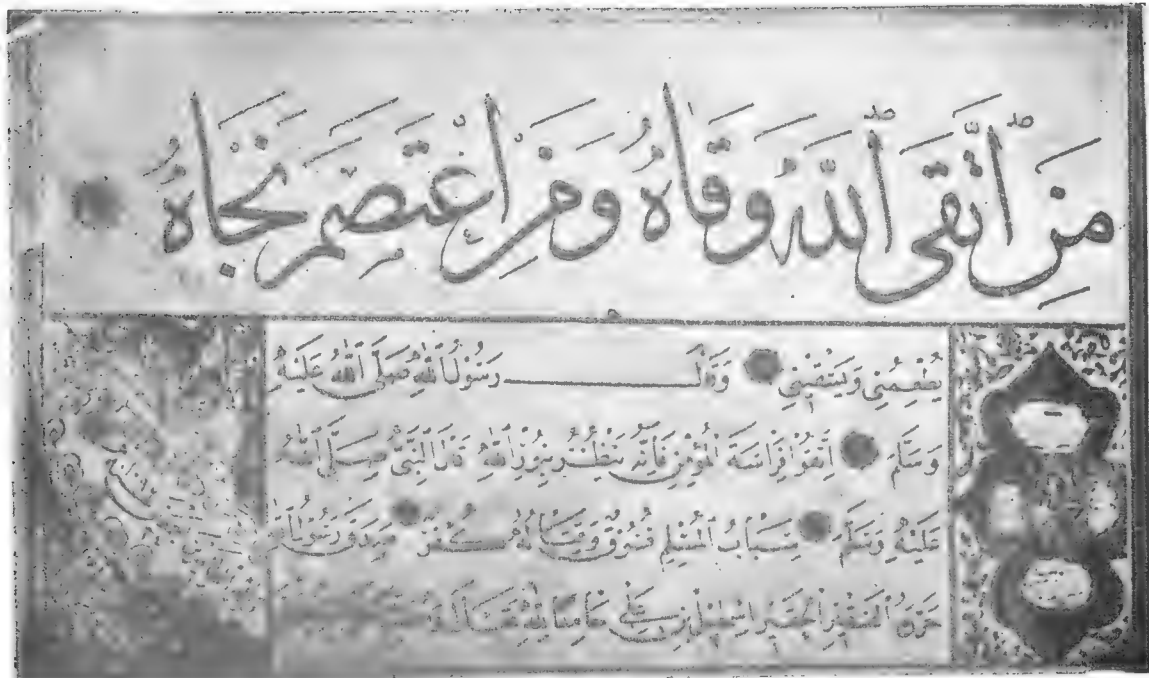 مَنِ ٱتَّقَى ٱللّٰهَ وَقَاهُ وَمَنِ اعْتَصَمَ نَجَاهُ
يُطْعِمُنِي وَيَسْقِينِي وَقَالَ رَسُولُ اللّٰهِ صَلَّى اللّٰهُ عَلَيْهِ
وَسَلَّمَ اِتَّقُوْا فِرَاسَةَ الْمُؤْمِنِ فَاِنَّهُ يَنْظُرُ بِنُورِ اللّٰهِ قَالَ النَّبِيُّ صَلَّى اللّٰهُ
عَلَيْهِ وَسَلَّمَ سِبَابُ الْمُسْلِمِ فُسُوقٌ وَقِتَالُهُ كُفْرٌ صَدَقَ رَسُولُ اللّٰهِ
حَرَّرَهُ الْفَقِيرُ الْحَقِيرُ اِسْمٰعِيلُ بْنُ عَلِي حَامِدًا لِلّٰهِ تَعَالَى